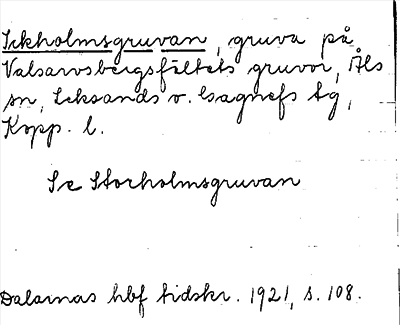 Ickholmsgruvan, gruva på
Valsarvsbergsfältets gruvor, Åls
sn, Leksands o. Gagnefs tg,
Kopp. l.
Se Storholmsgruvan
Dalarnas hbf tidskr. 1921, s. 108.